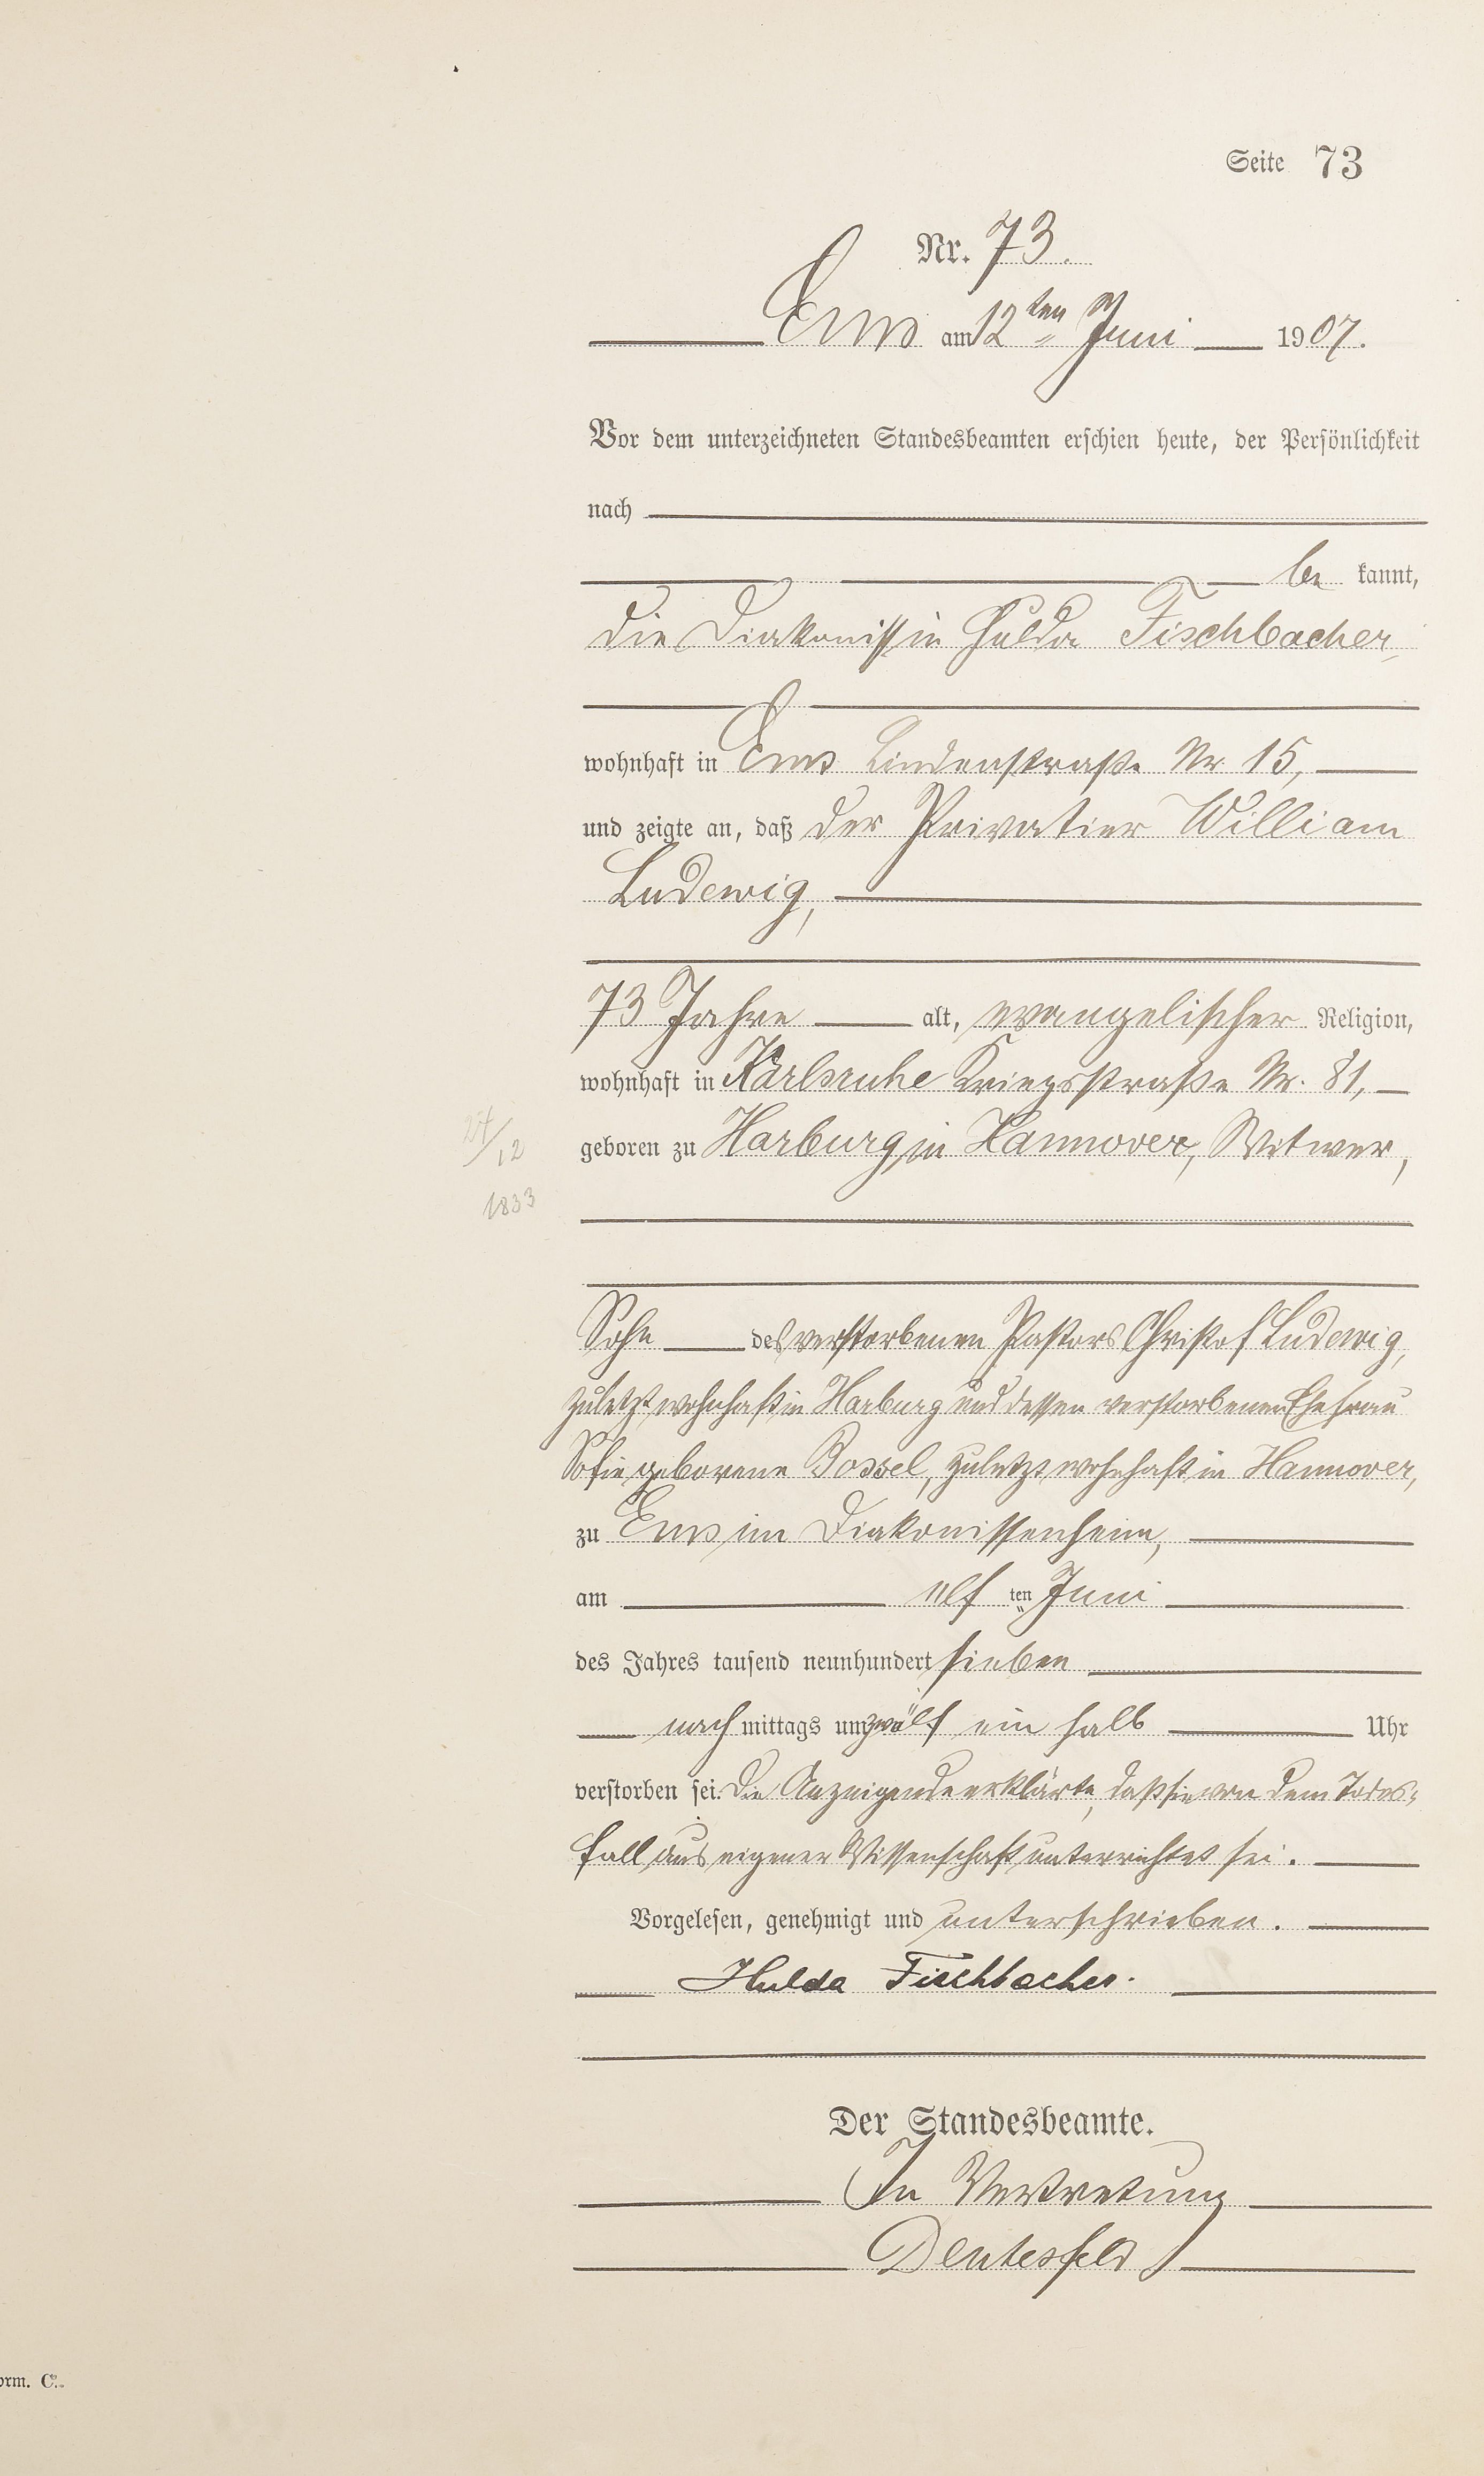 Seite 73
Nr. 73.
Ems am 12ten Juni 1907.
Vor dem unterzeichneten Standesbeamten erschien heute, der Persönlichkeit
nach
be kannt,
die Diakonissin Hulda Fischbacher,
wohnhaft in Ems Lindenstraße Nr. 15,
und zeigte an, daß der Privatier William
Ludewig,
73 Jahre alt, evangelischer Religion,
wohnhaft in Karlsruhe Kriegsstraße Nr. 81,
geboren zu Harburg, in Hannover, Witwer,
27/12
1833
Sohn des verstorbenen Pastors Christof Ludewig,
zuletzt wohnhaft in Harburg und dessen verstorbenen Ehefrau
Sofie geborene Bossel, zuletzt wohnhaft in Hannover,
zu Ems im Diakonissenheim,
am elf ten Juni
des Jahres tausend neunhundert sieben
nach mittags um zwölf ein halb Uhr
verstorben sei. Die Anzeigende erklärte, daß sie von dem Todes-
fall aus eigener Wissenschaft unterrichtet sei.
Vorgelesen, genehmigt und unterschrieben.
Hulda Fischbacher.
Der Standesbeamte.
In Vertretung
Deutesfeld
orm. C.